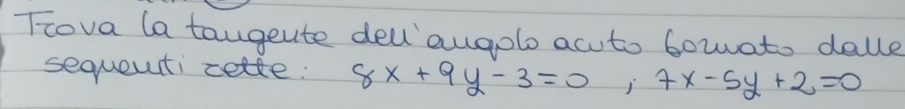 Trova la tangente dell'angolo acuto formato dalle
seguenti rette: 8x + 9y - 3 = 0 ; 7x - 5y + 2 = 0